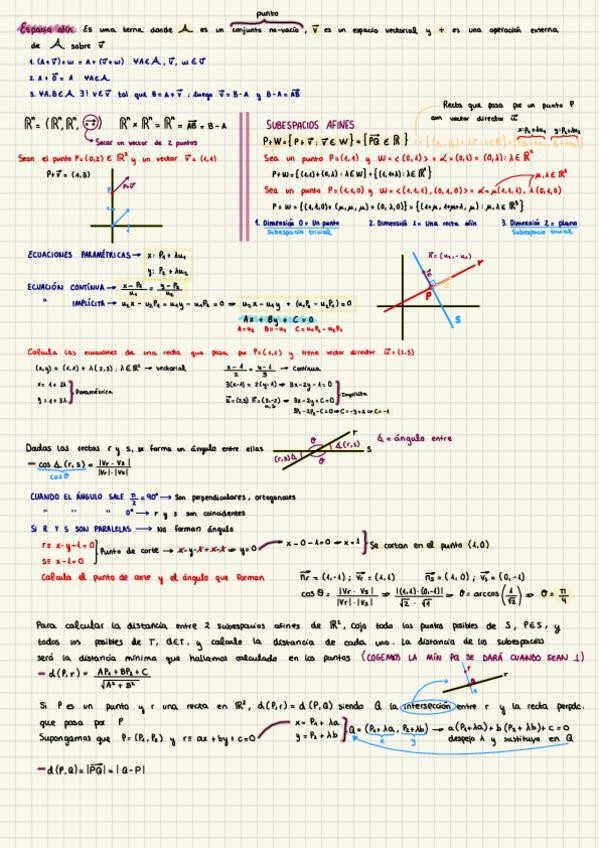 punto
Espacio afín. Es una terna donde A es un conjunto no-vacío, v⃗ es un espacio vectorial y + es una operación externa
de A sobre v⃗
1. (A+v⃗)+w = A+(v⃗+w) ∀A∈A, v⃗, w∈v⃗
2. A + 0⃗ = A ∀A∈A
3. ∀A,B∈A ∃! v∈v⃗ tal que B=A+v⃗; luego v⃗=B-A y B-A=AB⃗
Recta que pasa por un punto P
con vector director u⃗
ℝⁿ × ℝⁿ = ℝⁿ = AB⃗ = B-A
Sacar un vector de 2 puntos
Sean el punto P=(0,2)∈ℝ² y un vector v⃗=(1,1)
P+v⃗=(1,3)
SUBESPACIOS AFINES
P+W={P+v⃗: v⃗∈W}={PQ⃗∈ℝ}
Sea un punto P=(1,1) y W=<(0,1)> = α=(0,1)=(0,λ): λ∈ℝ²
P+W={(1,1)+(0,λ): λ∈ℝ}={(1,1+λ): λ∈ℝ}
Sea un punto P=(1,1,0) y W=<(1,1,1),(0,1,0)> = α=μ(1,1,1), λ(0,1,0)
P+W={(1,1,0)+(μ,μ,μ)+(0,λ,0)}={(1+μ, 1+μ+λ, μ): μ,λ∈ℝ}
1. Dimensión 0 = Un punto 2. Dimensión 1 = Una recta afín 3. Dimensión 2 = plano
Subespacio trivial Subespacio trivial
ECUACIONES PARAMÉTRICAS → x: P₁+λu₁
y: P₂+λu₂
ECUACIÓN CONTÍNUA → x-P₁/u₁ = y-P₂/u₂
" IMPLÍCITA → u₂x-u₂P₁=u₁y-u₁P₂ ⇒ u₂x-u₁y+(u₁P₂-u₂P₁)=0
Ax + By + C = 0
A=u₂ B=-u₁ C=u₁P₂-u₂P₁
n⃗=(u₂,-u₁)
r
P
s
Calcula las ecuaciones de una recta que pasa por P=(1,1) y tiene vector director u⃗=(2,3)
(x,y)=(1,1)+λ(2,3); λ∈ℝ → vectorial
x-1/2 = y-1/3 → Contínua
x=1+2λ
y=1+3λ
Paramétrica
3(x-1)=2(y-1) ⇒ 3x-2y-1=0
u⃗=(2,3) n⃗=(3,-2) ⇒ 3x-2y+C=0
Implícita
3P₁-2P₂-C=0 ⇒ C=-3+2 ⇒ C=-1
Dadas las rectas r y s, se forma un ángulo entre ellas
r
θ
(r,s)∡ ∡(r,s) s
θ
∡ = ángulo entre
— cos ∡(r,s) = |Vr · Vs| / |Vr|·|Vs|
cosθ
CUANDO EL ÁNGULO SALE π/2=90° → Son perpendiculares, ortogonales
" " " 0° → r y s son coincidentes
SI R Y S SON PARALELAS → No forman ángulo
r≡ x-y-1=0
s≡ x-1=0
Punto de corte → x-y-1=x-1 ⇒ y=0
x-0-1=0 ⇒ x=1
Se cortan en el punto (1,0)
Calcula el punto de corte y el ángulo que forman
nr⃗=(1,-1); vr⃗=(1,1) ns⃗=(1,0); vs⃗=(0,-1)
cosθ = |Vr · Vs| / |Vr|·|Vs| ⇒ |(1,1)·(0,-1)| / √2 · √1 ⇒ θ=arccos(1/√2) ⇒ θ=π/4
Para calcular la distancia entre 2 subespacios afines de ℝ², cojo todo los puntos posibles de S, P∈S, y
todos los posibles de T, Q∈T, y calculo la distancia de cada uno. La distancia de los subespacios
será la distancia mínima que hallamos calculado en los puntos (COGEMOS LA MÍN PQ SE DARÁ CUANDO SEAN ⊥)
— d(P,r) = AP₁+BP₂+C / √A²+B²
r
Si P es un punto y r una recta en ℝ², d(P,r)=d(P,Q) siendo Q la intersección entre r y la recta perpdc.
que pasa por P
Supongamos que P=(P₁,P₂) y r≡ ax+by+c=0
x=P₁+λa
y=P₂+λb
Q=(P₁+λa, P₂+λb) → a(P₁+λa)+b(P₂+λb)+c=0
x y despeja λ y sustituye en Q
— d(P,Q)=|PQ⃗|=|Q-P|